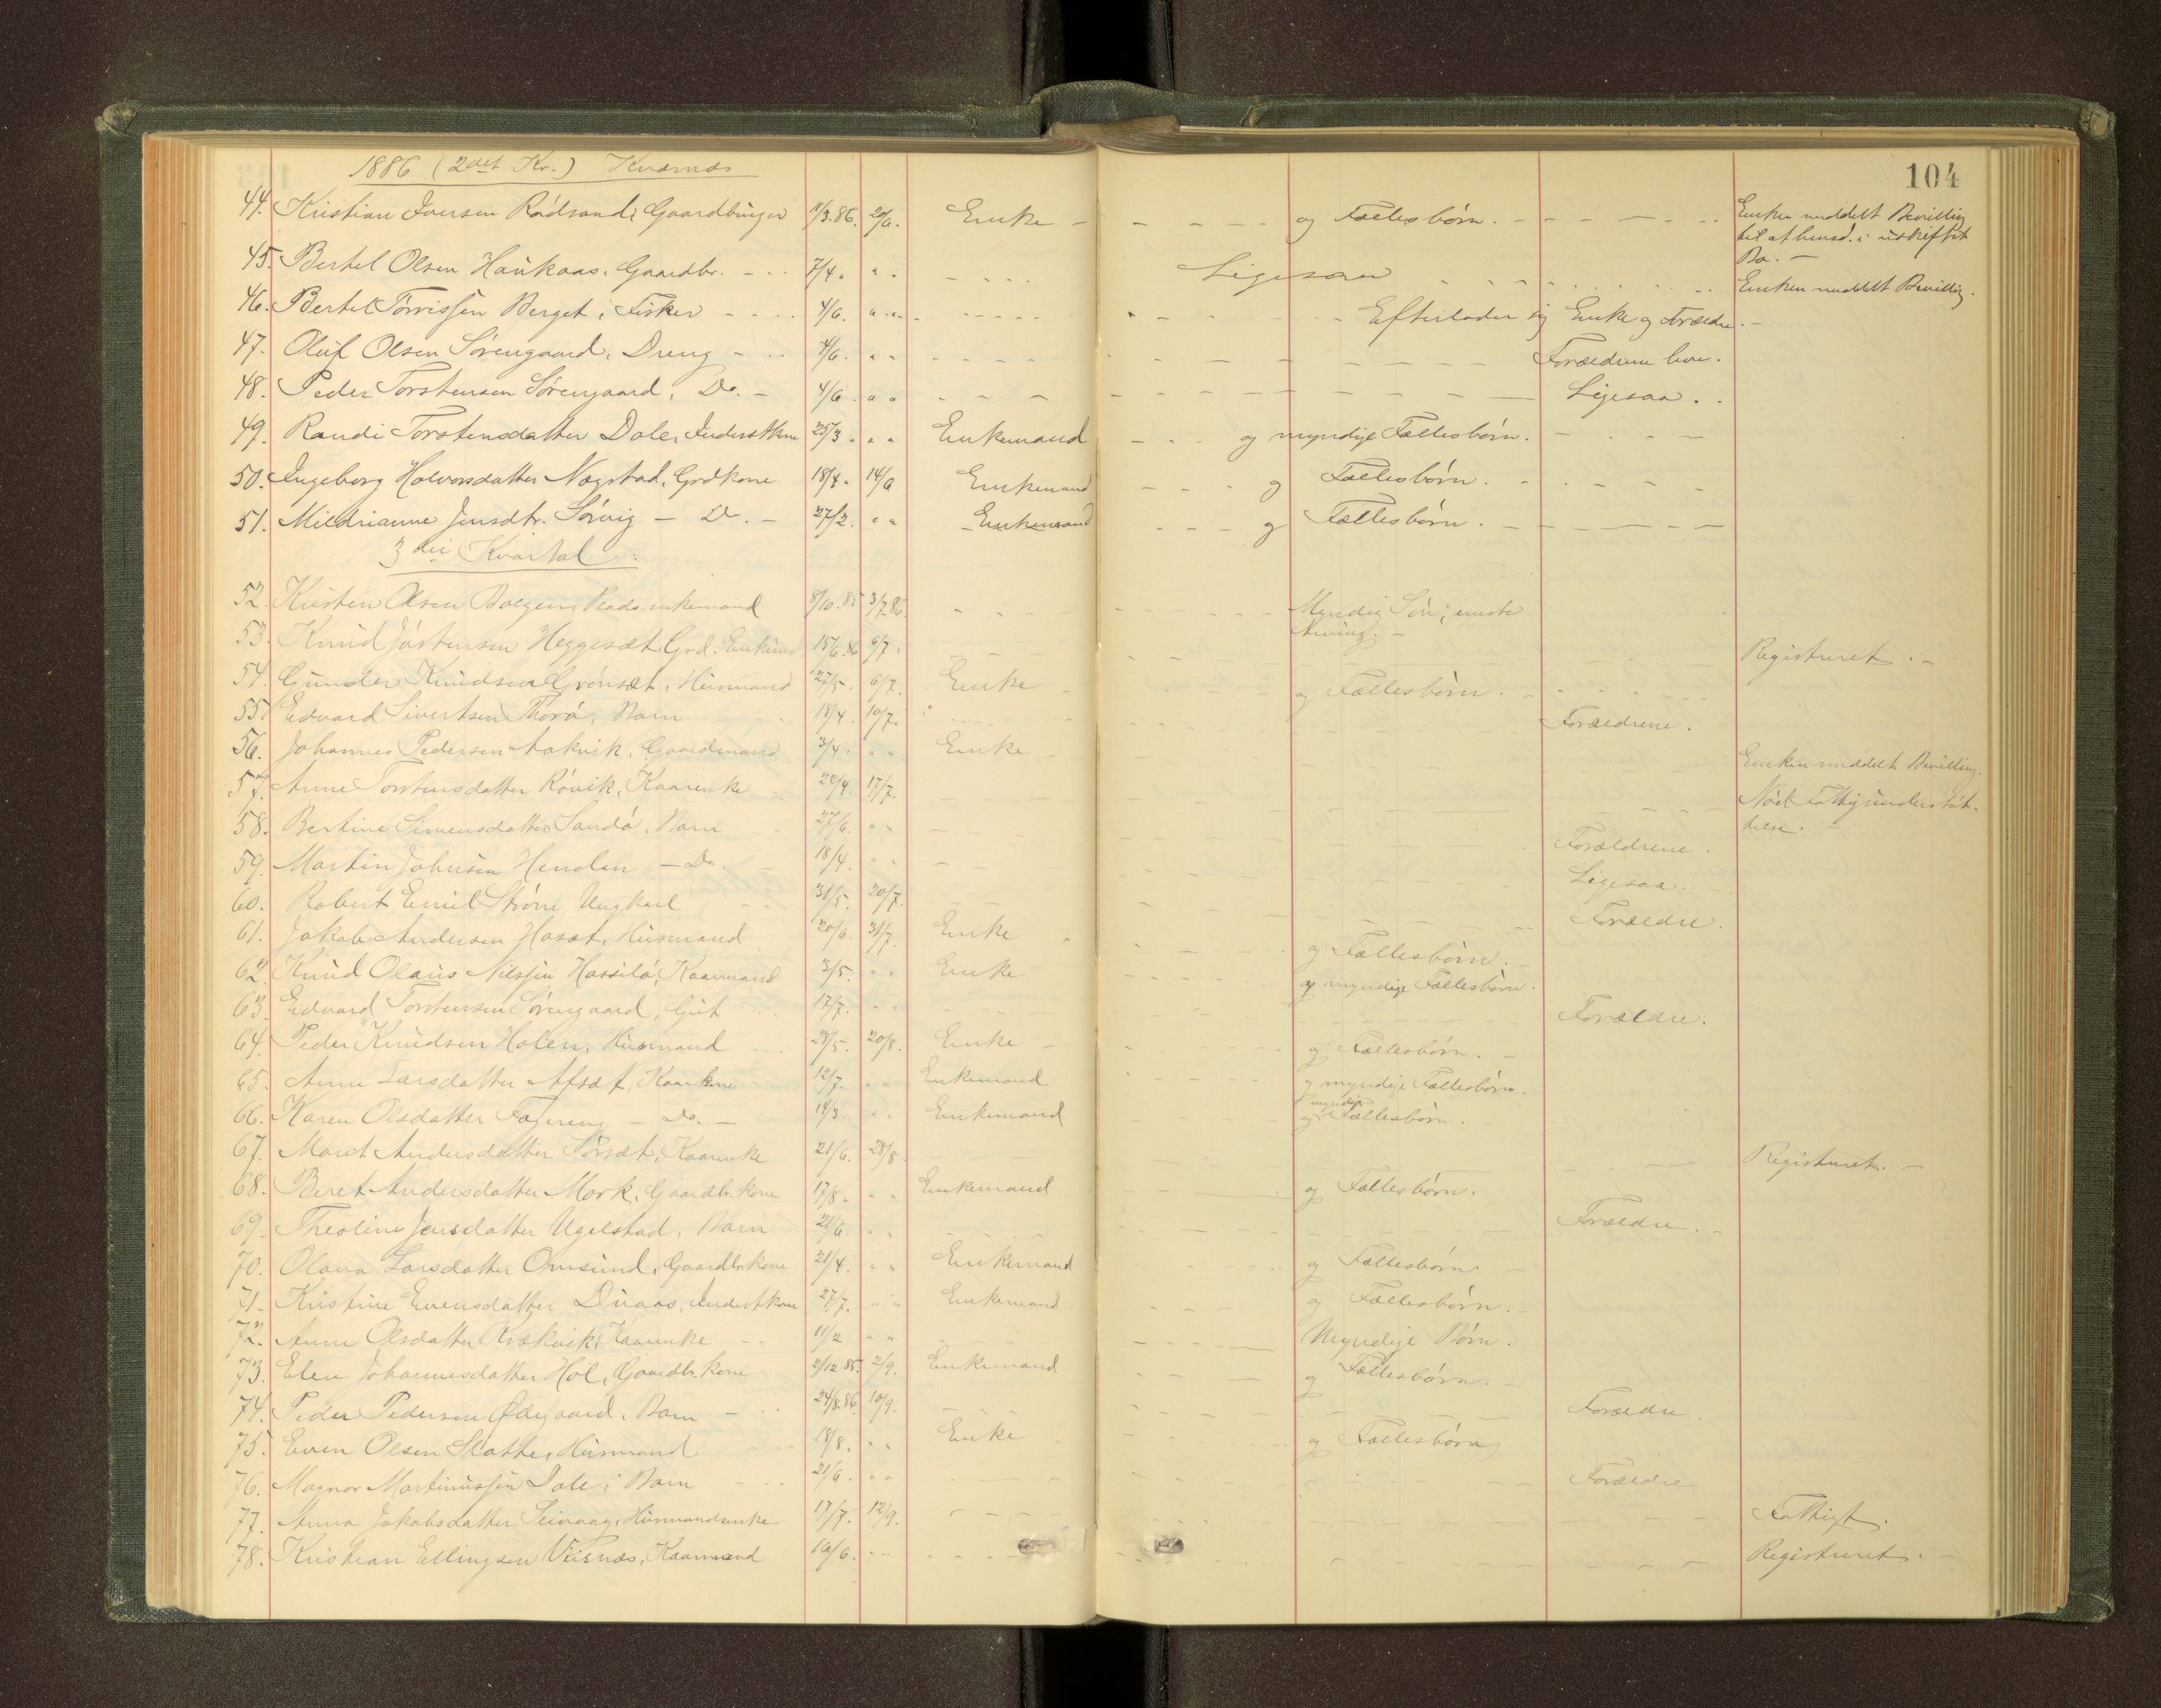 104
1886 (2det Kr.) Kvernes
44. Kristian Iversen Rødsand, Gaardbruger 11/3.86. 29/6. Enke - og Fællesbørn. Enken meddelt Bevilling
til at hensd. i uskiftet
Bo. -
45. Bertel Olsen Haukaas, Gaardbr. 7/4. " . Ligesaa Enken meddelt Bevillig.
46. Bertel Torrissen Berget, Fisker 4/6. " Efterlader sig Enke og Forældre. -
47. Oluf Olsen Sørengaard, Dreng 4/6. " " Forældrene leve.
48. Peder Torstensen Sørengaard, Do. - 4/6. " " Ligesaa.
49. Randi Torstensdatter Dale, Inderstkone 25/3. " " Enkemand og myndige Fællesbørn.
50. Ingeborg Halvorsdatter Nægstad, Grdkone 18/4. 14/6 Enkemand og Fællesbørn.
51. Mildrianne Jensdtr. Sørvig - Do. - 27/2. " " Enkemand og Fællesbørn.
3die Kvartal.
52. Kristen Olsen Bolgen, Pladsenkemand 8/10.85 3/7.86. Myndig Søn; eneste
Arving. -
53. Knud Jørstensen Heggeset, Grd. Enkemd. 15/6.86 6/7. Registreret. -
54. Gunder Knudsen Grønset, Husmand 27/5. 6/7. Enke og Fællesbørn.
55. Edvard Sivertsen Thorø, Barn 18/4. 10/7. Forældrene.
56. Johannes Pedersen Aakvik, Gaardmand 3/4. " " Enke Enken meddelt Bevilling.
57. Anne Torstensdatter Røvik, Kaarenke 24/4. 17/7. Nød Fattigunderstøt-
telse. -
58. Bertine Simensdatter Sandø, Barn 27/6. " " Forældrene.
59. Martin Johnsen Henden - Do. 18/4. " " Ligesaa.
60. Robert Emil Strøm Ungkarl 31/5. 20/7. Forældre.
61. Jakob Andersen Haset, Husmand 20/6. 31/7. Enke og Fællesbørn.
62. Knud Olaus Nilssen Hasselø, Kaarmand 3/5. " " Enke og myndige Fællesbørn.
63. Edvard Torstensen Sørengaard, Gut 17/7. " Forældre.
64. Peder Knudsen Holen, Husmand 28/5. 20/8. Enke og Fællesbørn. -
65. Anne Larsdatter Afset, Kaarkone 12/7. " " Enkemand og myndige Fællesbørn.
66. Karen Olsdatter Fagereng - Do. - 14/3. " " Enkemand og myndige Fællesbørn.
67. Marit Andersdatter Sørset, Kaarenke 21/6. 28/8. Registreret. -
68. Beret Andersdatter Mork, Gaardbr.kone 17/8. " " Enkemand og Fællesbørn.
69. Theoline Jensdatter Ugelstad, Barn 21/6. " " Forældre. -
70. Olava Larsdatter Omsund, Gaardbr.kone 21/4. " " Enkemand og Fællesbørn.
71. Kristine Evensdatter Duaas, Inderstkone 27/7. " " Enkemand og Fællesbørn. -
72. Anne Olsdatter Krækvik, Kaarenke 11/2 " " Myndige Børn.
73. Elen Johannesdatter Hol, Gaardbr.kone 2/12 85. 2/9. Enkemand og Fællesbørn. -
74. Peder Pedersen Ødegaard, Barn 24/8.86. 10/9. Forældre.
75. Even Olsen Slatte, Husmand 18/8. " " Enke og Fællesbørn
76. Magnor Martinussen Dale, Barn 21/6. " " Forældre
77. Anna Jakobsdatter Seivaag, Husmandsenke 17/7. 12/9. Fattigt.
78. Kristian Ellingsen Visnæs, Kaarmand 16/6. Registreret. -